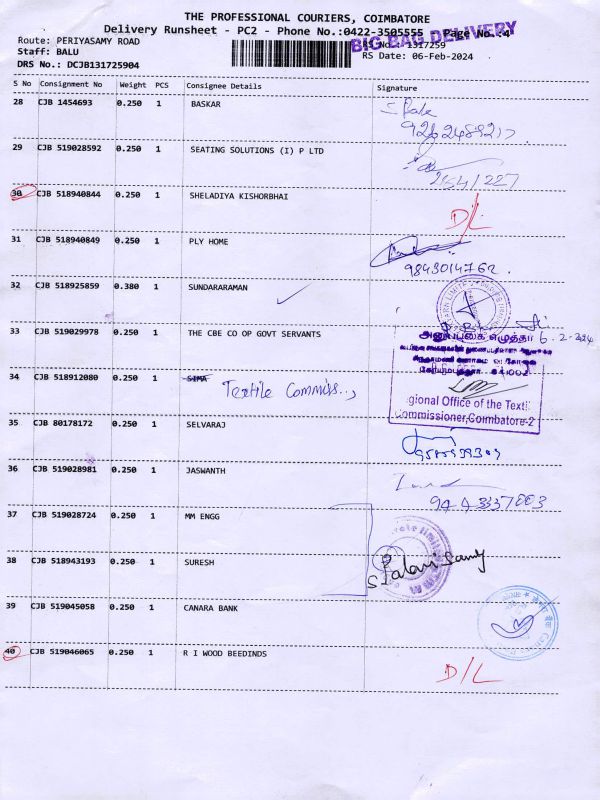 THE PROFESSIONAL COURIERS, COIMBATORE
Delivery Runsheet - PC2 - Phone No.:0422-3505555 Page No.:4
BIG BAG DELIVERY
Route: PERIYASAMY ROAD
RS No.: 1317259
Staff: BALU
RS Date: 06-Feb-2024
DRS No.: DCJB131725904
S No Consignment No Weight PCS Consignee Details Signature
28 CJB 1454693 0.250 1 BASKAR
29 CJB 519028592 0.250 1 SEATING SOLUTIONS (I) P LTD
30 CJB 518940844 0.250 1 SHELADIYA KISHORBHAI D/L
31 CJB 518940849 0.250 1 PLY HOME
9843014762.
32 CJB 518925859 0.380 1 SUNDARARAMAN
33 CJB 519029978 0.250 1 THE CBE CO OP GOVT SERVANTS
34 CJB 518912080 0.250 1 SIMA Textile Commiss..,
Regional Office of the Textile
Commissioner, Coimbatore-2
35 CJB 80178172 0.250 1 SELVARAJ
36 CJB 519028981 0.250 1 JASWANTH
9443337003
37 CJB 519028724 0.250 1 MM ENGG
38 CJB 518943193 0.250 1 SURESH
S Palanisamy
39 CJB 519045058 0.250 1 CANARA BANK
40 CJB 519046065 0.250 1 R I WOOD BEEDINDS
D/L